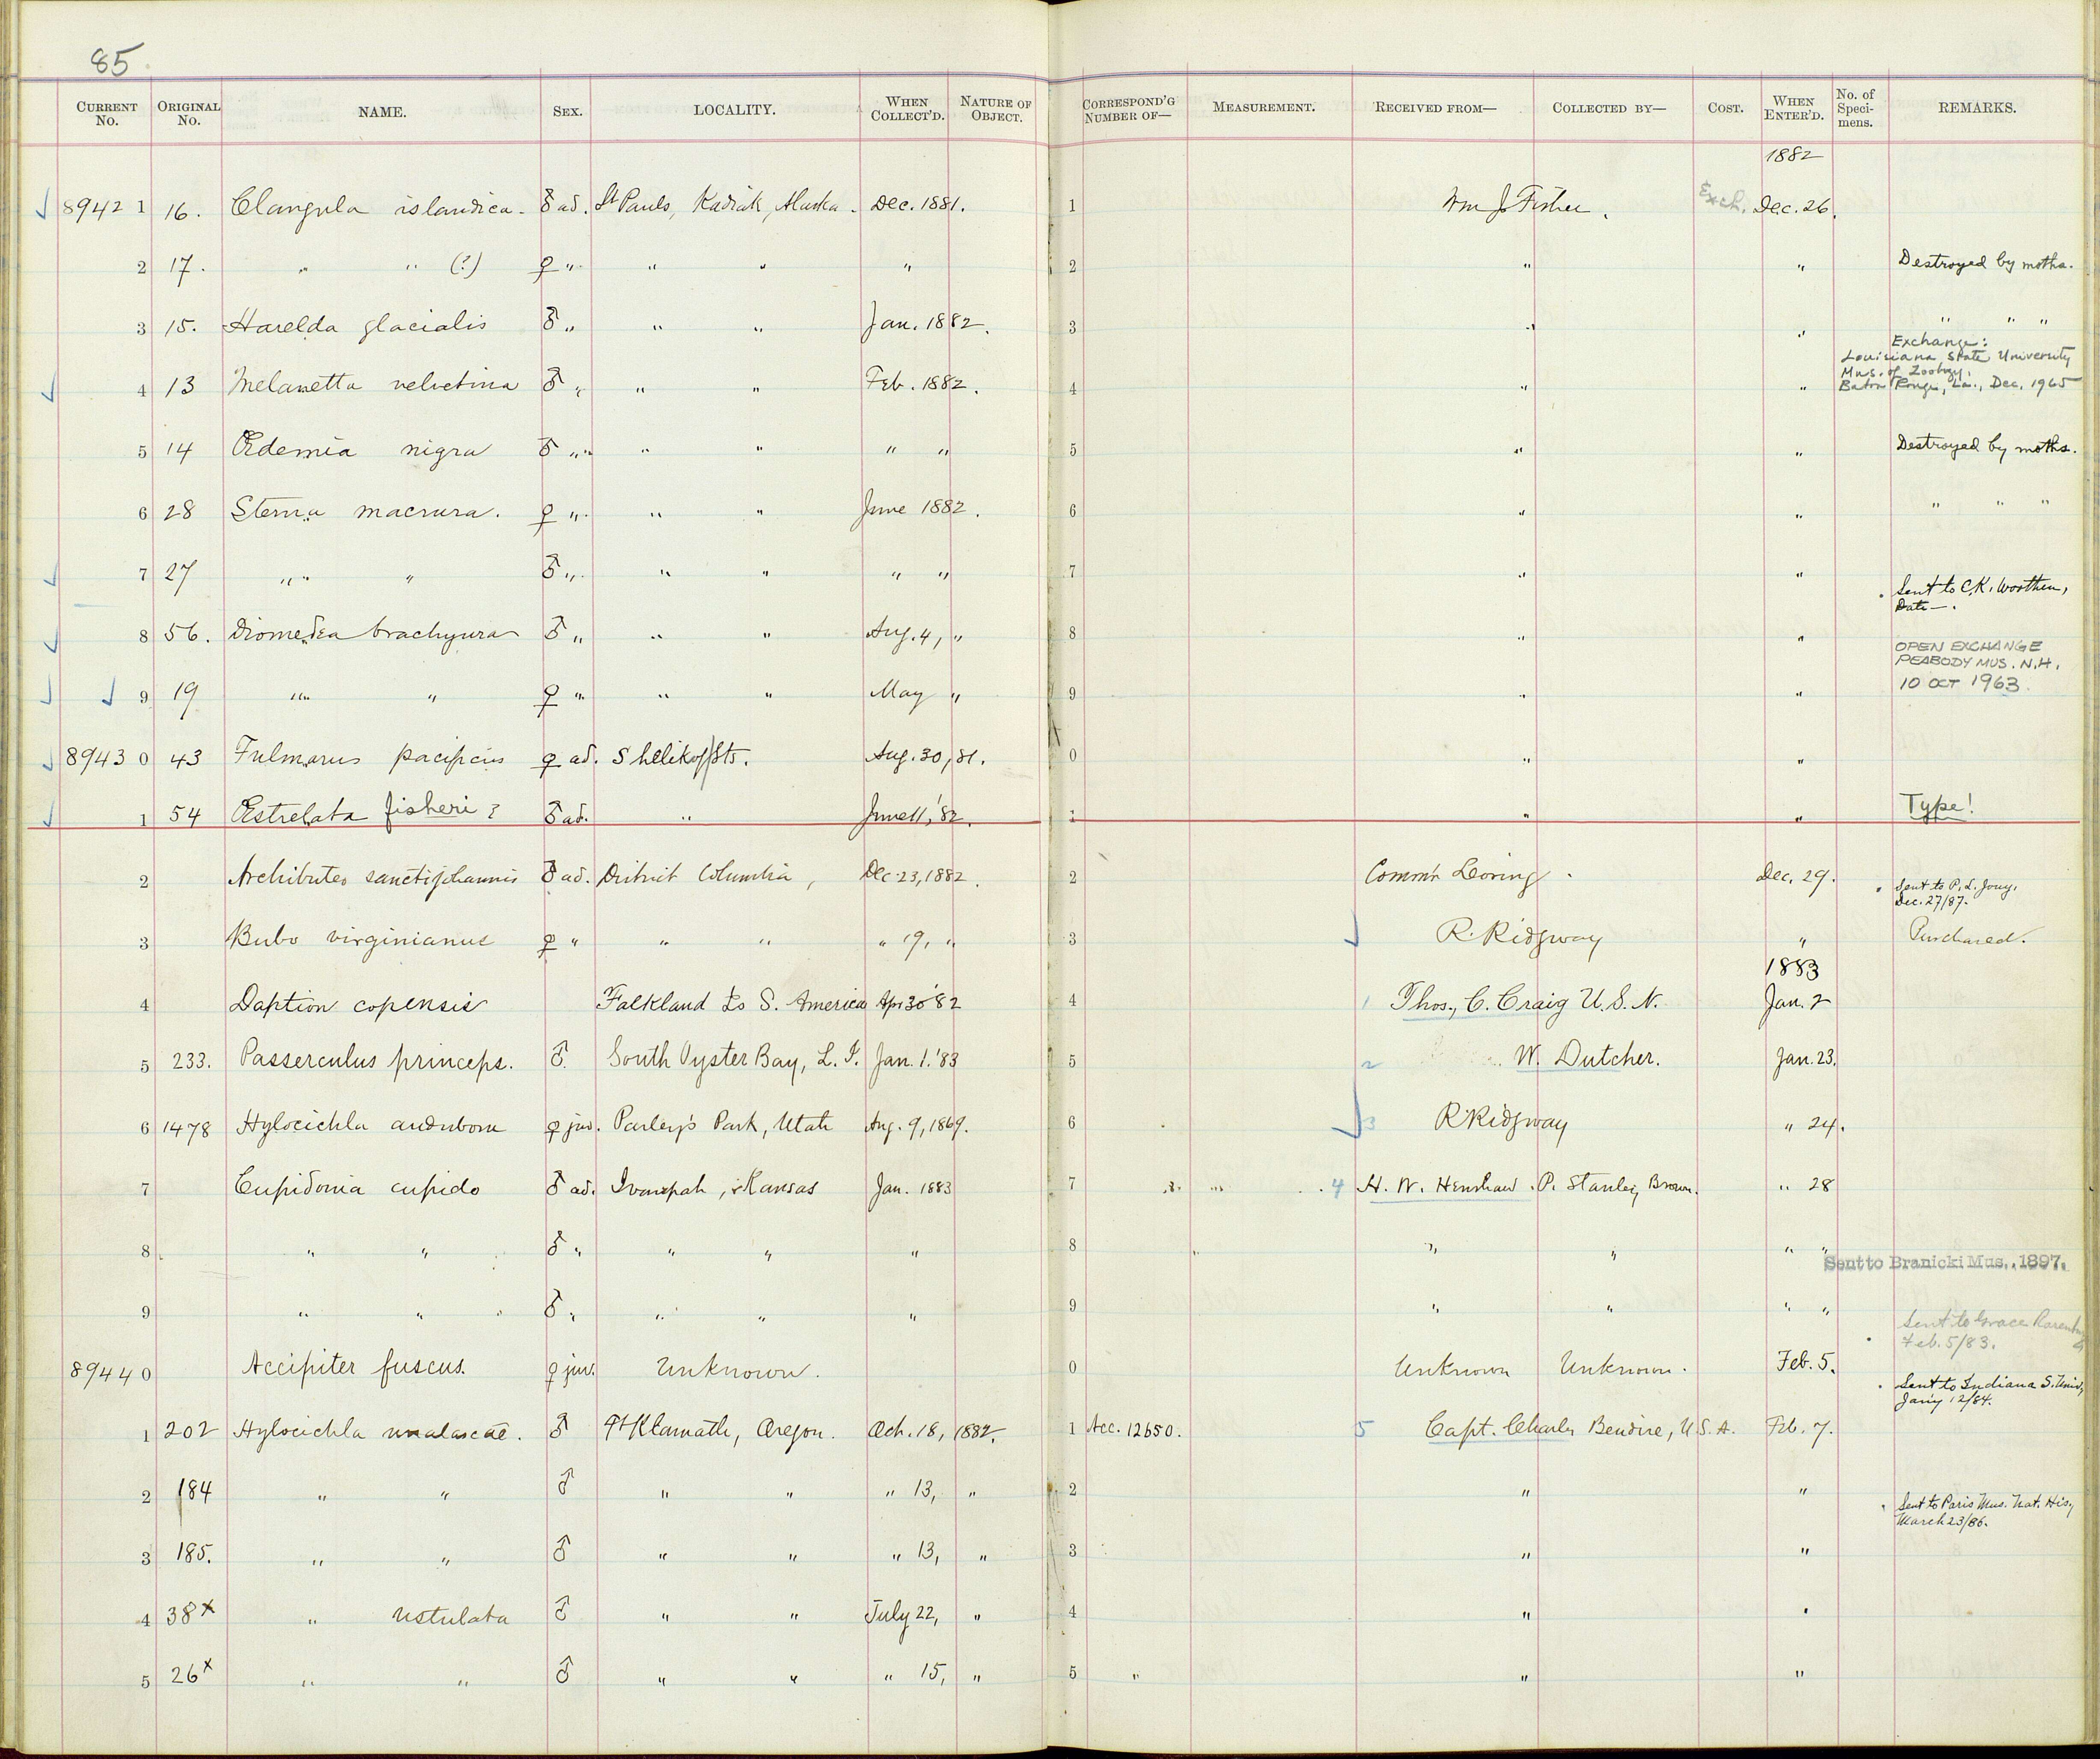 85
CURRENT No. ORIGINAL No. NAME. SEX. LOCALITY. WHEN COLLECT'D. NATURE OF OBJECT. CORRESPOND'G NUMBER OF— MEASUREMENT. RECEIVED FROM— COLLECTED BY— COST. WHEN ENTER'D. No. of Specimens. REMARKS.
1882
8942 1 16. Clangula islandica. ♂ ad. St Pauls, Kadiak, Alaska. Dec. 1881. 1 Wm J Fisher. Exch. Dec. 26.
2 17. " " (?) ♀ " " " " 2 " " Destroyed by moths.
3 15. Harelda glacialis ♂ " " " Jan. 1882. 3 " " " " "
Exchange:
Louisiana State University
Mus. of Zoology,
4 13 Melanetta velvetina ♂ " " " Feb. 1882. 4 " " Baton Rouge, La., Dec. 1965
5 14 Œdemia nigra ♂ " " " " " 5 " " Destroyed by moths.
6 28 Sterna macrura. ♀ " " " June 1882. 6 " " " " "
7 27 " " ♂ " " " " " 7 " "
Sent to C.K. Worthen,
Date —.
8 56. Diomedea brachyura ♂ " " " Aug. 4, " 8 " "
OPEN EXCHANGE
PEABODY MUS. N.H.
10 OCT 1963
9 19 " " ♀ " " " May " 9 " "
8943 0 43 Fulmarus pacificus ♀ ad. Shelikoff Sts. Aug. 30, 81. 0 " "
1 54 Œstrelata fisheri ? ♂ ad. " June 11, '82. 1 " " Type!
2 Archibuteo sanctijohannis ♂ ad. District Columbia, Dec. 23, 1882. 2 Comm'r Loring. Dec. 29.
Sent to P. L. Jouy,
Dec. 27/87.
3 Bubo virginianus ♀ " " " " 19, " 3 R. Ridgway " Purchased.
1883
4 Daption copensis Falkland Is S. America Apr 30 '82 4 1 Thos. C. Craig U.S.N. Jan. 2
5 233. Passerculus princeps. ♂. South Oyster Bay, L. I. Jan. 1. '83 5 2 W. Dutcher. Jan. 23.
6 1478 Hylocichla auduboni ♀ juv. Parley's Park, Utah Aug. 9, 1869. 6 3 R Ridgway " 24.
7 Cupidonia cupido ♂ ad. Kansas Jan. 1883 7 4 H. W. Henshaw. P. Stanley Brown. " 28
8 " " ♂ " " " " 8 " " " "
Sent to Branicki Mus., 1897.
9 " " ♂ " " " " 9 " " " "
Sent to Grace
Feb. 5/83.
8944 0 Accipiter fuscus. ♀ juv. Unknown. 0 Unknown Unknown. Feb. 5.
Sent to Indiana S. Univ,
Jan'y 12/84.
1 202 Hylocichla unalascae. ♂ Ft Klamath, Oregon. Oct. 18, 1882. 1 Acc. 12650. 5 Capt. Charles Bendire, U.S.A. Feb. 7.
2 184 " " ♂ " " " 13, " 2 " "
Sent to Paris Mus. Nat. His,
March 23/86.
3 185. " " ♂ " " " 13, " 3 " "
4 38x " ustulata ♂ " " July 22, " 4 " "
5 26x " " ♂ " " " 15, " 5 " " "